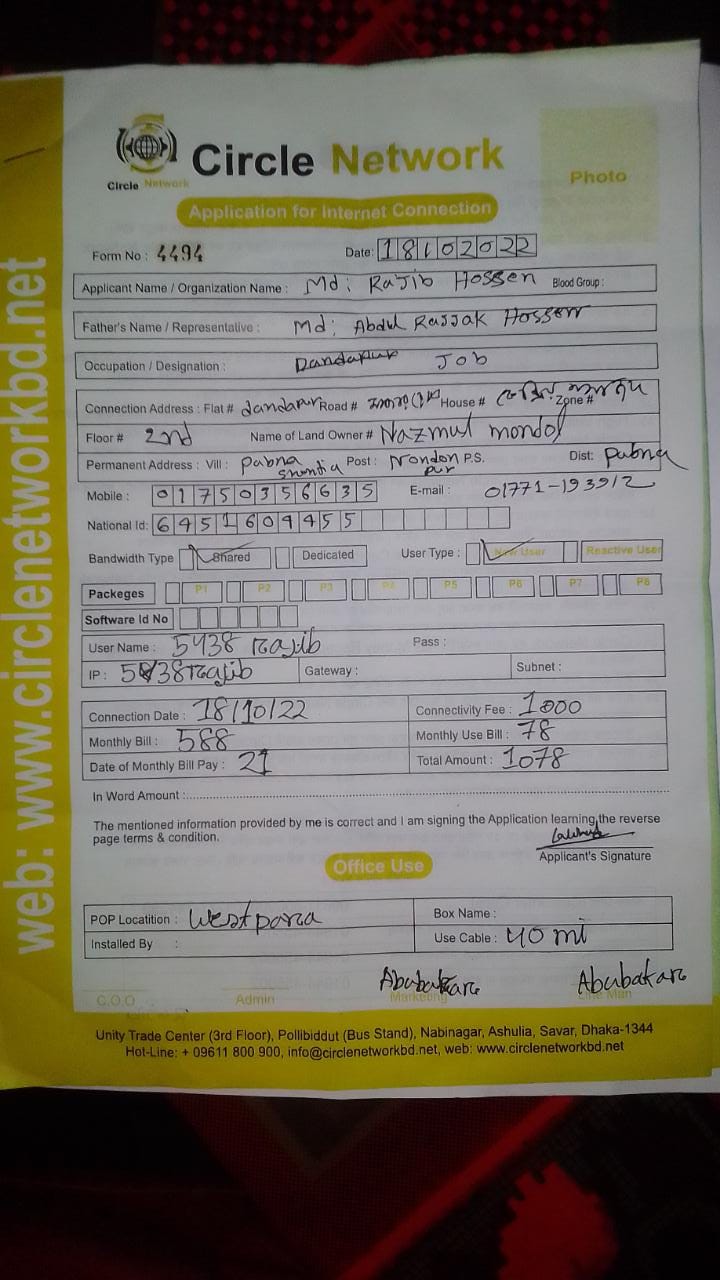 web: www.circlenetworkbd.net
Circle Network
Circle Network
Photo
Application for Internet Connection
Form No : 4494
Date: 18102022
Applicant Name / Organization Name : Md: Rajib Hossen Blood Group :
Father's Name / Representative : Md: Abdul Rajjak Hossen
Occupation / Designation : Dandapur Job
Connection Address : Flat # dandapur Road # House # Zone #
Floor # 2nd Name of Land Owner # Nazmul mondol
Permanent Address : Vill : Pabna Post : Nondon pur P.S. Dist: Pabna
Mobile : 01750356635 E-mail : 01771-193912
National Id: 6451609455
Bandwidth Type Shared Dedicated User Type : New User Reactive User
Packeges P1 P2 P3 P4 P5 P6 P7 P8
Software Id No
User Name : 5438 Rajib Pass :
IP : 5438Rajib Gateway : Subnet :
Connection Date : 18/10/22 Connectivity Fee : 1000
Monthly Bill : 588 Monthly Use Bill : 78
Date of Monthly Bill Pay : 21 Total Amount : 1078
In Word Amount :
The mentioned information provided by me is correct and I am signing the Application learning the reverse
page terms & condition.
Applicant's Signature
Office Use
POP Locatition : Westpara Box Name :
Installed By : Use Cable : 40 mi
Abubakar Abubakar
C.O.O Admin Marketing Line Man
Unity Trade Center (3rd Floor), Pollibiddut (Bus Stand), Nabinagar, Ashulia, Savar, Dhaka-1344
Hot-Line: + 09611 800 900, info@circlenetworkbd.net, web: www.circlenetworkbd.net